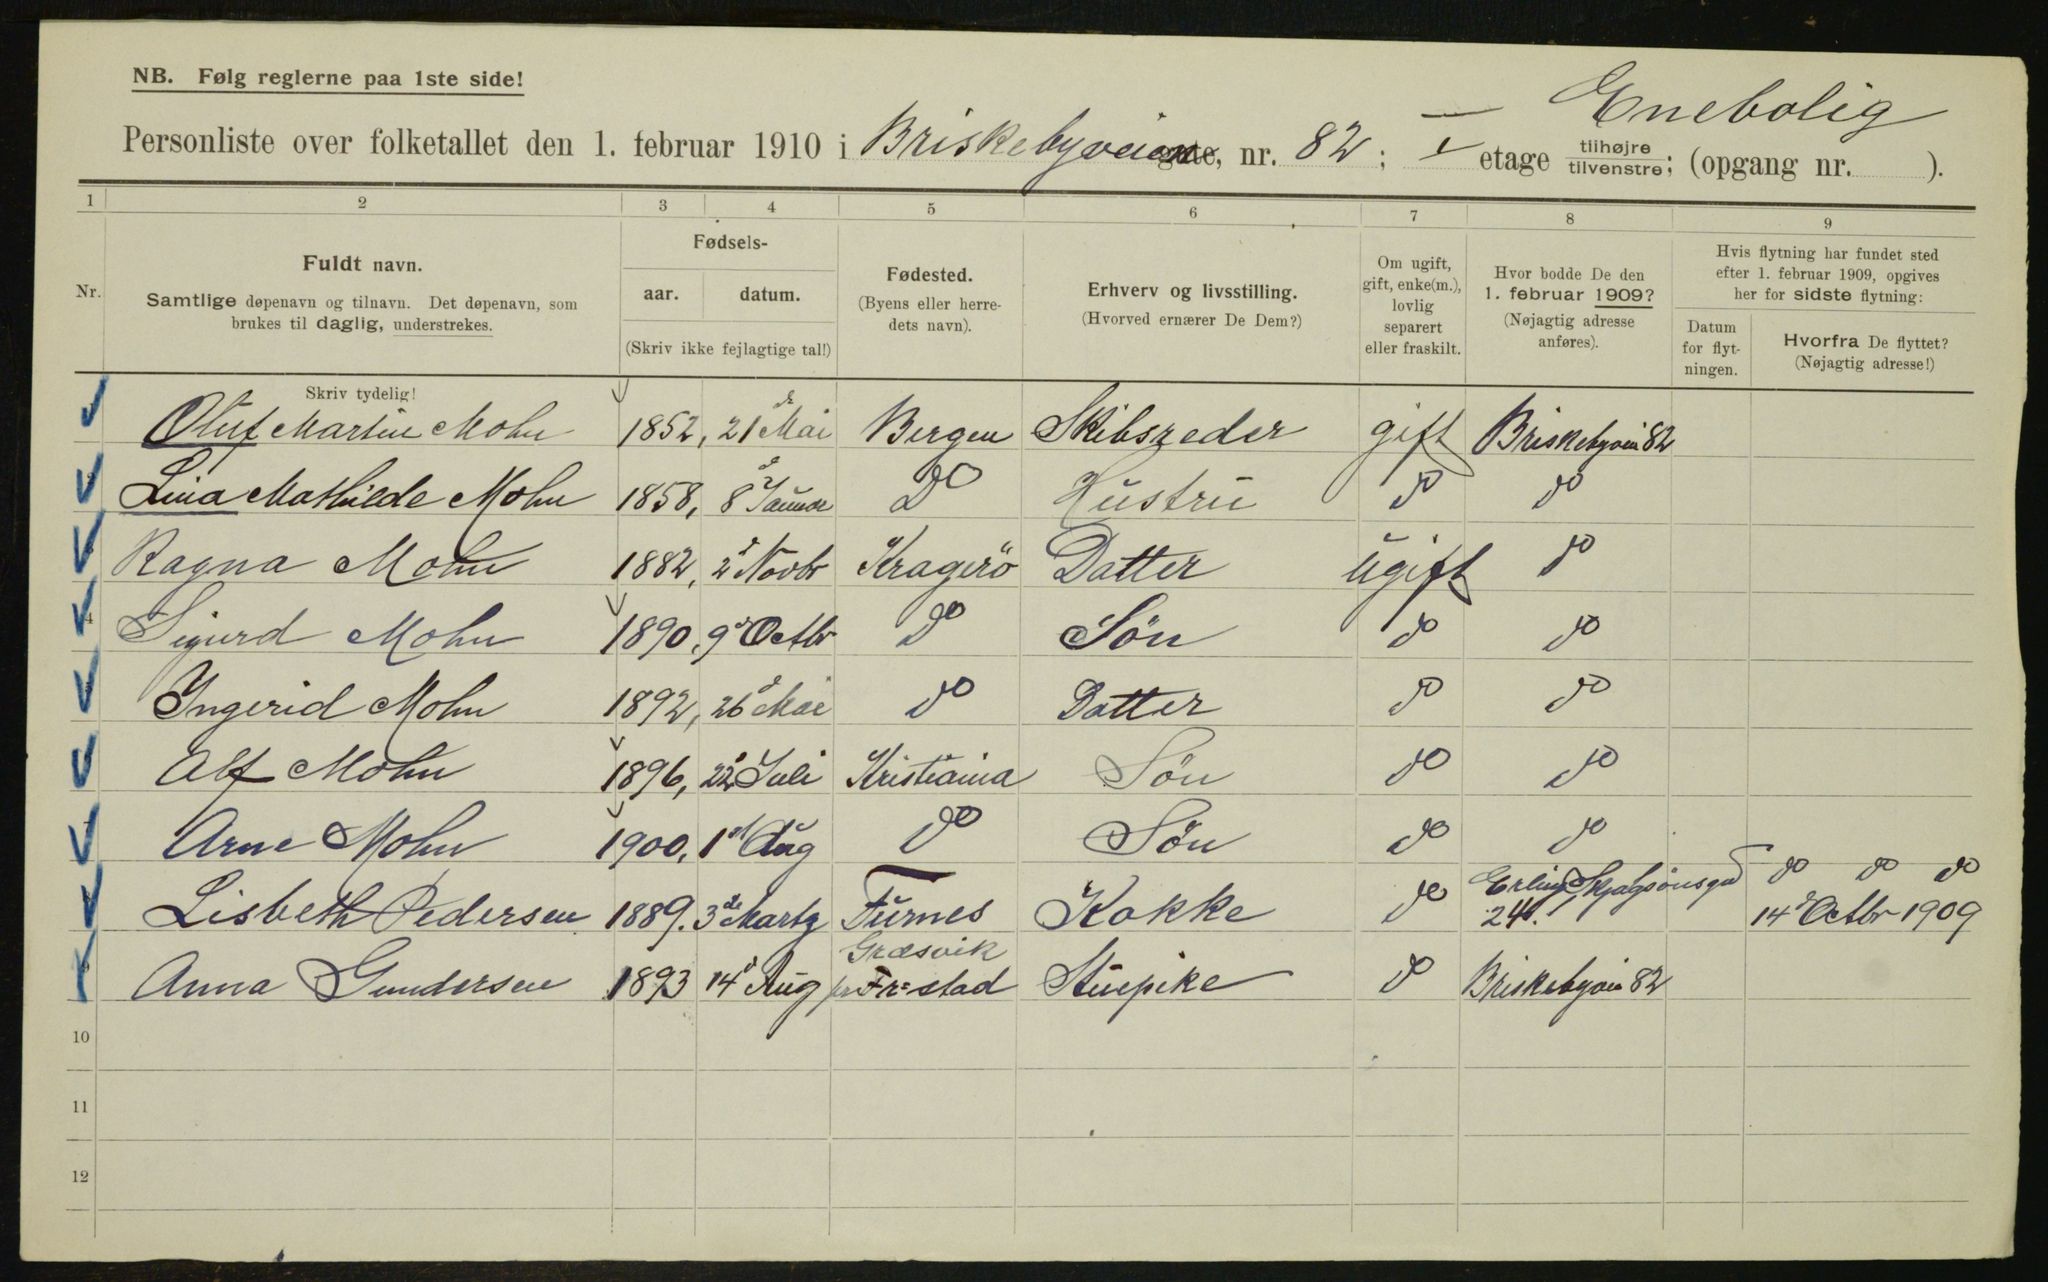 NB. Følg reglerne paa 1ste side!
Enebolig
Personliste over folketallet den 1. februar 1910 i Briskebyveien gate, nr. 82; I etage tilhøjre tilvenstre; (opgang nr. ).
1 2 3 4 5 6 7 8 9
Nr.
Fuldt navn.
Samtlige døpenavn og tilnavn. Det døpenavn, som
brukes til daglig, understrekes.
Skriv tydelig!
Fødsels-
aar. datum.
(Skriv ikke fejlagtige tal!)
Fødested.
(Byens eller herre-
dets navn).
Erhverv og livsstilling.
(Hvorved ernærer De Dem?)
Om ugift,
gift, enke(m.),
lovlig
separert
eller fraskilt.
Hvor bodde De den
1. februar 1909?
(Nøjagtig adresse
anføres).
Hvis flytning har fundet sted
efter 1. februar 1909, opgives
her for sidste flytning:
Datum
for flyt-
ningen.
Hvorfra De flyttet?
(Nøjagtig adresse!)
Oluf Martin Mohn 1852, 21de Mai Bergen Skibsreder gift Briskebyvei 82
2 Lina Mathilde Mohn 1858, 8d Januar Do Hustru do do
3 Ragna Mohn 1882, 2d Novbr Kragerö Datter ugift do
4 Sigurd Mohn 1890, 9de Octbr Do Sön do do
5 Ingerid Mohn 1892, 26d Mai do Datter do do
6 Alf Mohn 1896, 22d Juli Kristiania Sön do do
7 Arne Mohn 1900, 1st Aug do Sön do do
Lisbeth Pedersen 1889. 3de Marts Furnes Kokke do Erling Skjalgsönsgd 24. do do do 14d Octbr 1909
9 Anna Gundersen 1893 14d Aug Græsvik pr Fr=stad Stuepike do Briskebyvei 82
10
11
12